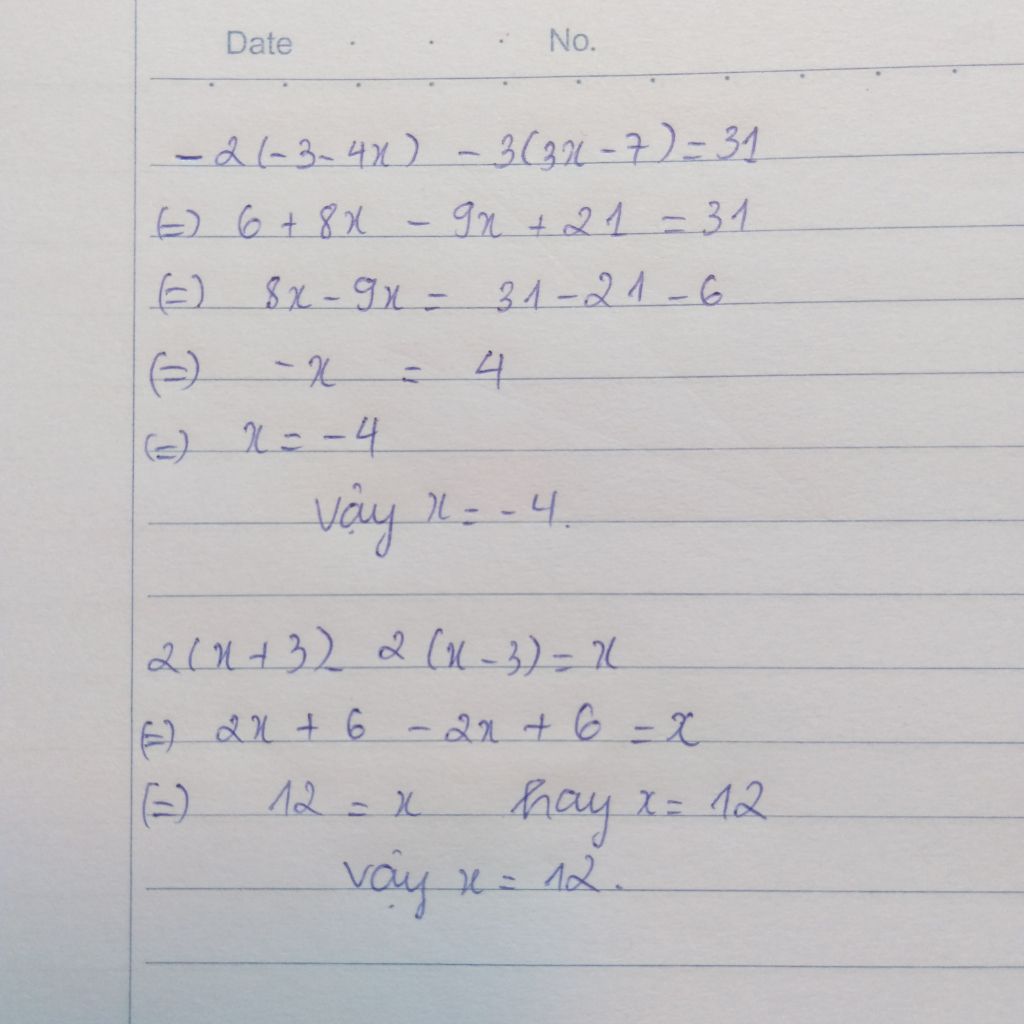 Date . . . No.
-2(-3-4x) -3(3x-7)=31
(=) 6+8x - 9x +21 =31
(=) 8x-9x= 31-21-6
(=) -x = 4
(=) x=-4
Vậy x=-4.
2(x+3)- 2(x-3)=x
(=) 2x+6 -2x+6 =x
(=) 12=x hay x=12
Vậy x=12.